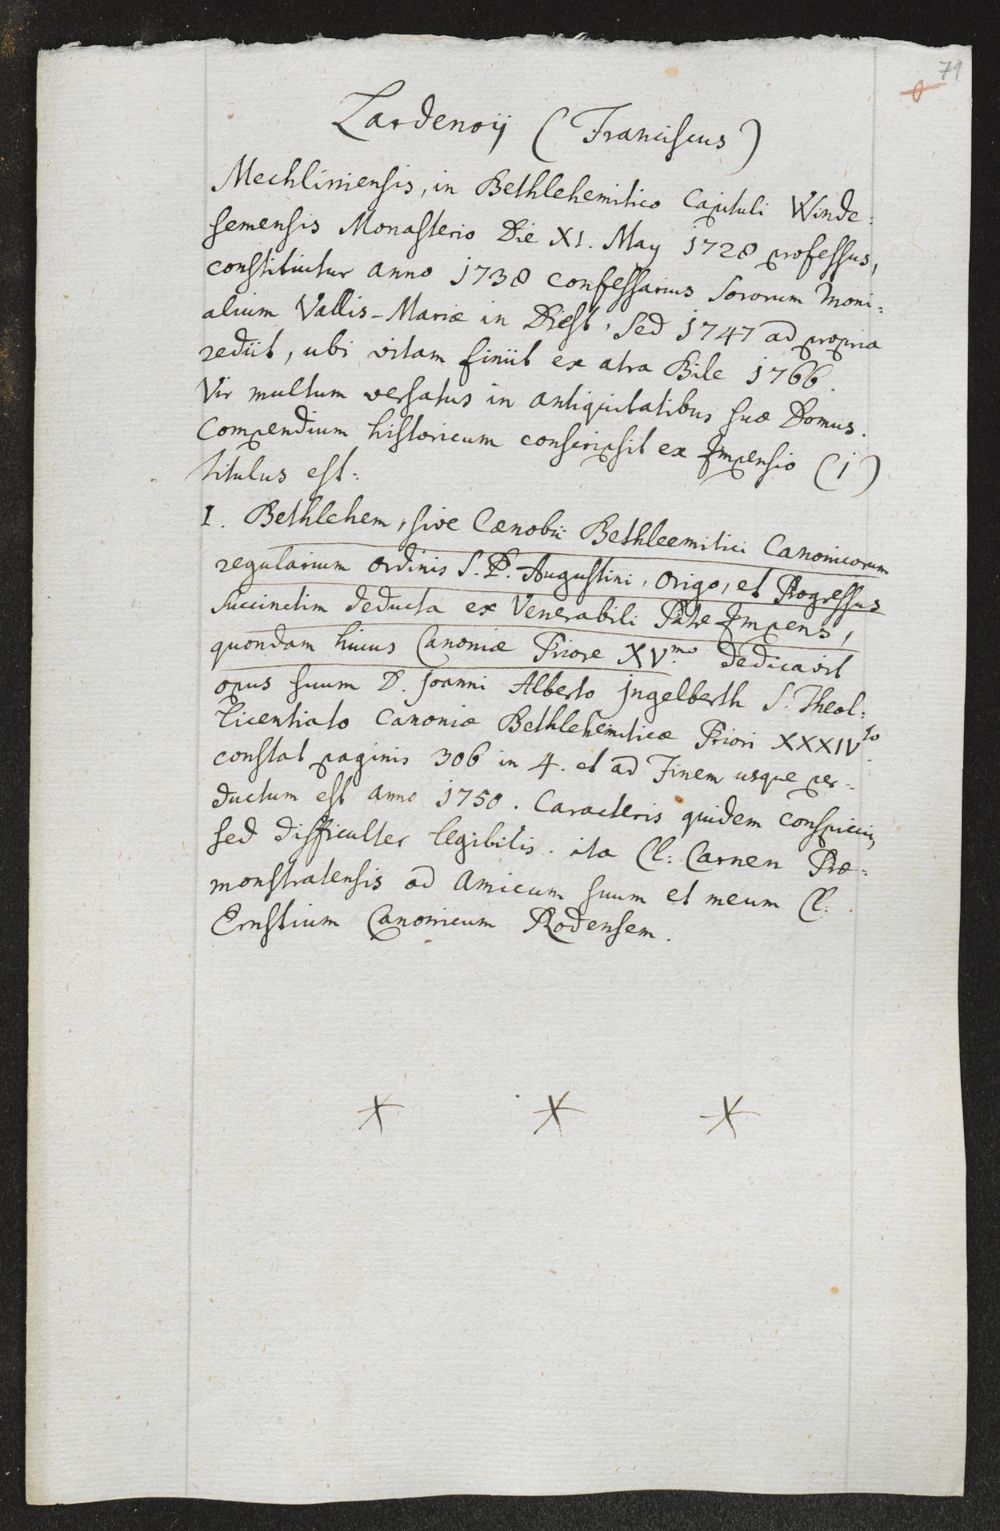 71
Lardenoij (Franciscus)
Mechliniensis, in Bethlehemitico Capituli Winde:
semensis Monasterio Die XI. May 1728 professus,
constituitur anno 1738 confessarius Sororum Moni:
alium Vallis-Mariæ in Diest, sed 1747 ad propria
rediit, ubi vitam finiit ex atra Bile 1766.
Vir multum versatus in antiquitatibus suæ Domus.
Compendium historicum conscripsit ex Impensio (i)
titulus est:
I. Bethlehem, sive Cœnobii Bethleemitici Canonicorum
regularium ordinis S. P. Augustini, origo, et Progressus
succinctim deducta ex Venerabili Patre Impens,
quondam huius Canoniæ Priore XV.mo Dedicavit
opus suum D. Joanni Alberto Jngelberth S. Theol:
licentiato Canoniæ Bethlehemiticæ Priori XXXIVto.
constat paginis 306 in 4. et ad Finem usque per:
ductum est anno 1750. Caracteris quidem conspicui,
sed difficulter legibilis. ita Cl: Carnen Præ:
monstratensis ad Amicum suum et meum Cl:
Ernstium Canonicum Rodensem.